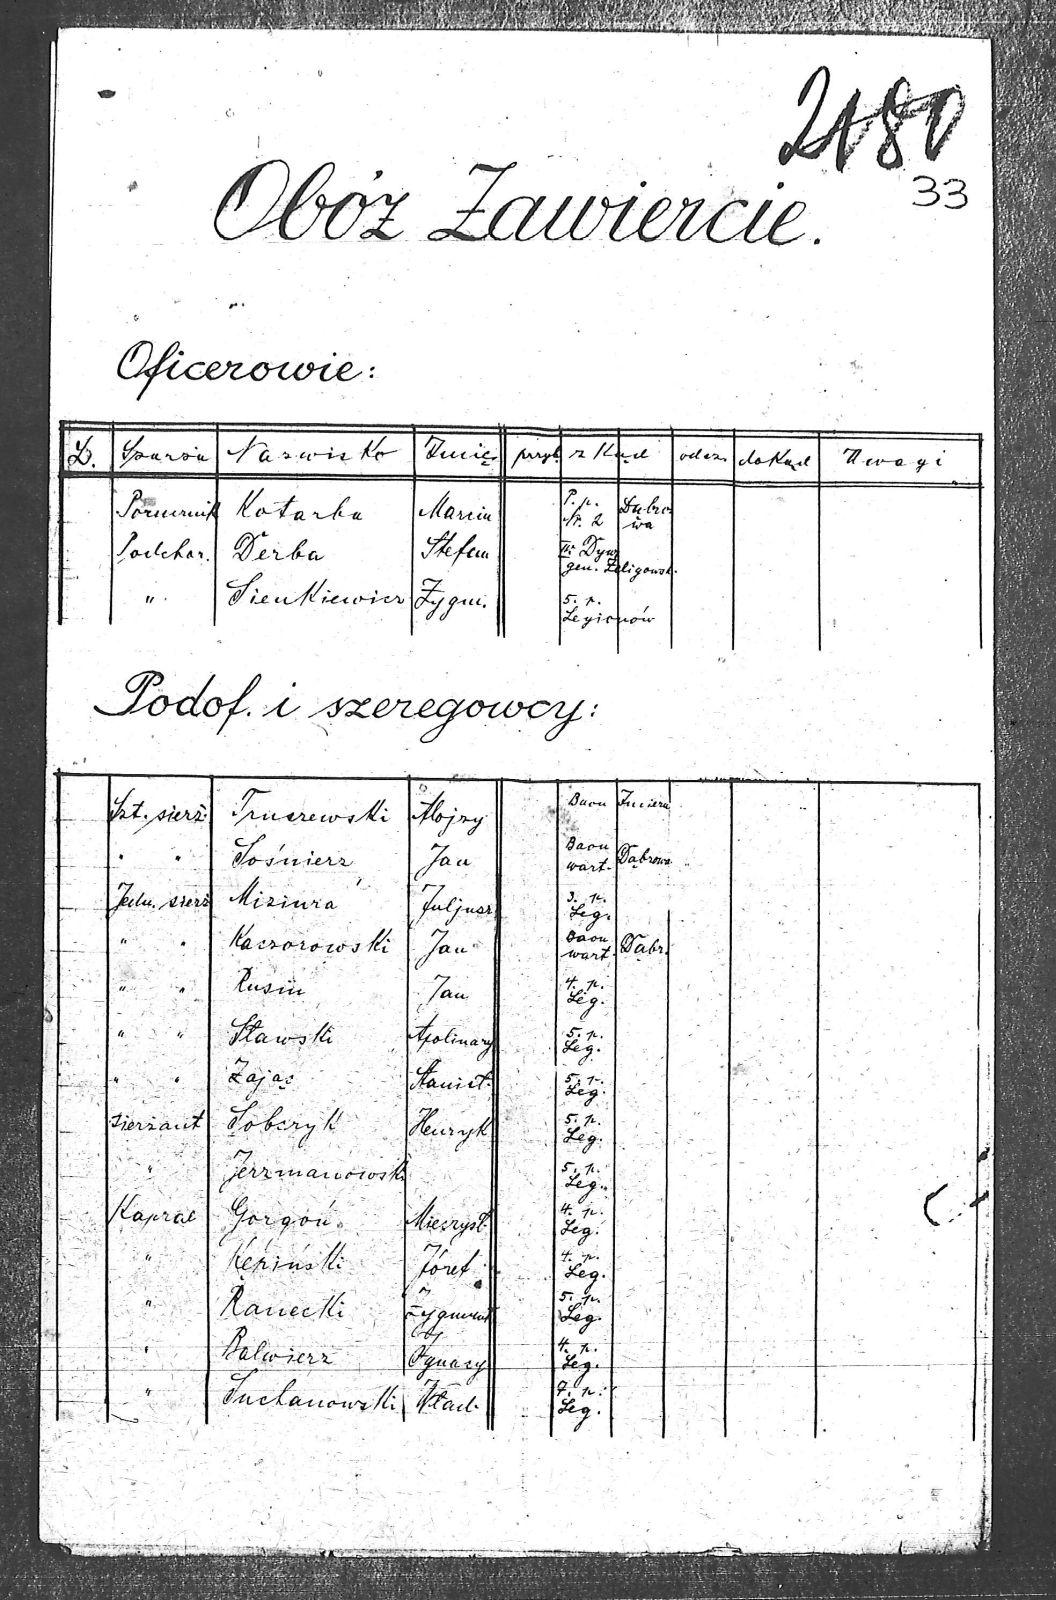 2180
33
Obóz Zawiercie.
Oficerowie:
L. Szarża Nazwisko Imię przyb. z kąd odesz. dokąd Uwagi
Porucznik Kotarba Marcin P. p. Nr. 2 Dąbrowa
Podchor. Derba Stefan III Dyw. gen. Żeligowsk.
" Sienkiewicz Zygm. 5. p. Legionów
Podof. i szeregowcy:
Szt. sierż. Truszewski Alojzy Baon Żmiera
" " Sośnierz Jan Baon wart. Dąbrowa
Jedn. sierż Miziura Juljusz 3. p. Leg.
" " Kaczorowski Jan Baon wart. Dąbr.
" " Rusin Jan 4. p. Leg.
" " Stawski Apolinary 5. p. Leg.
" " Zając Stanisł. 5. p. Leg.
sierżant Sobczyk Henryk 5. p. Leg.
" Jerzmanowski 5. p. Leg.
Kapral Gorgoń Mieczysł. 4. p. Leg.
" Kępiński Józef 4. p. Leg.
" Ranecki Zygmunt 5. p. Leg.
" Balwierz Ignacy 4. p. Leg.
" Suchanowski Wład. 7. p. Leg.